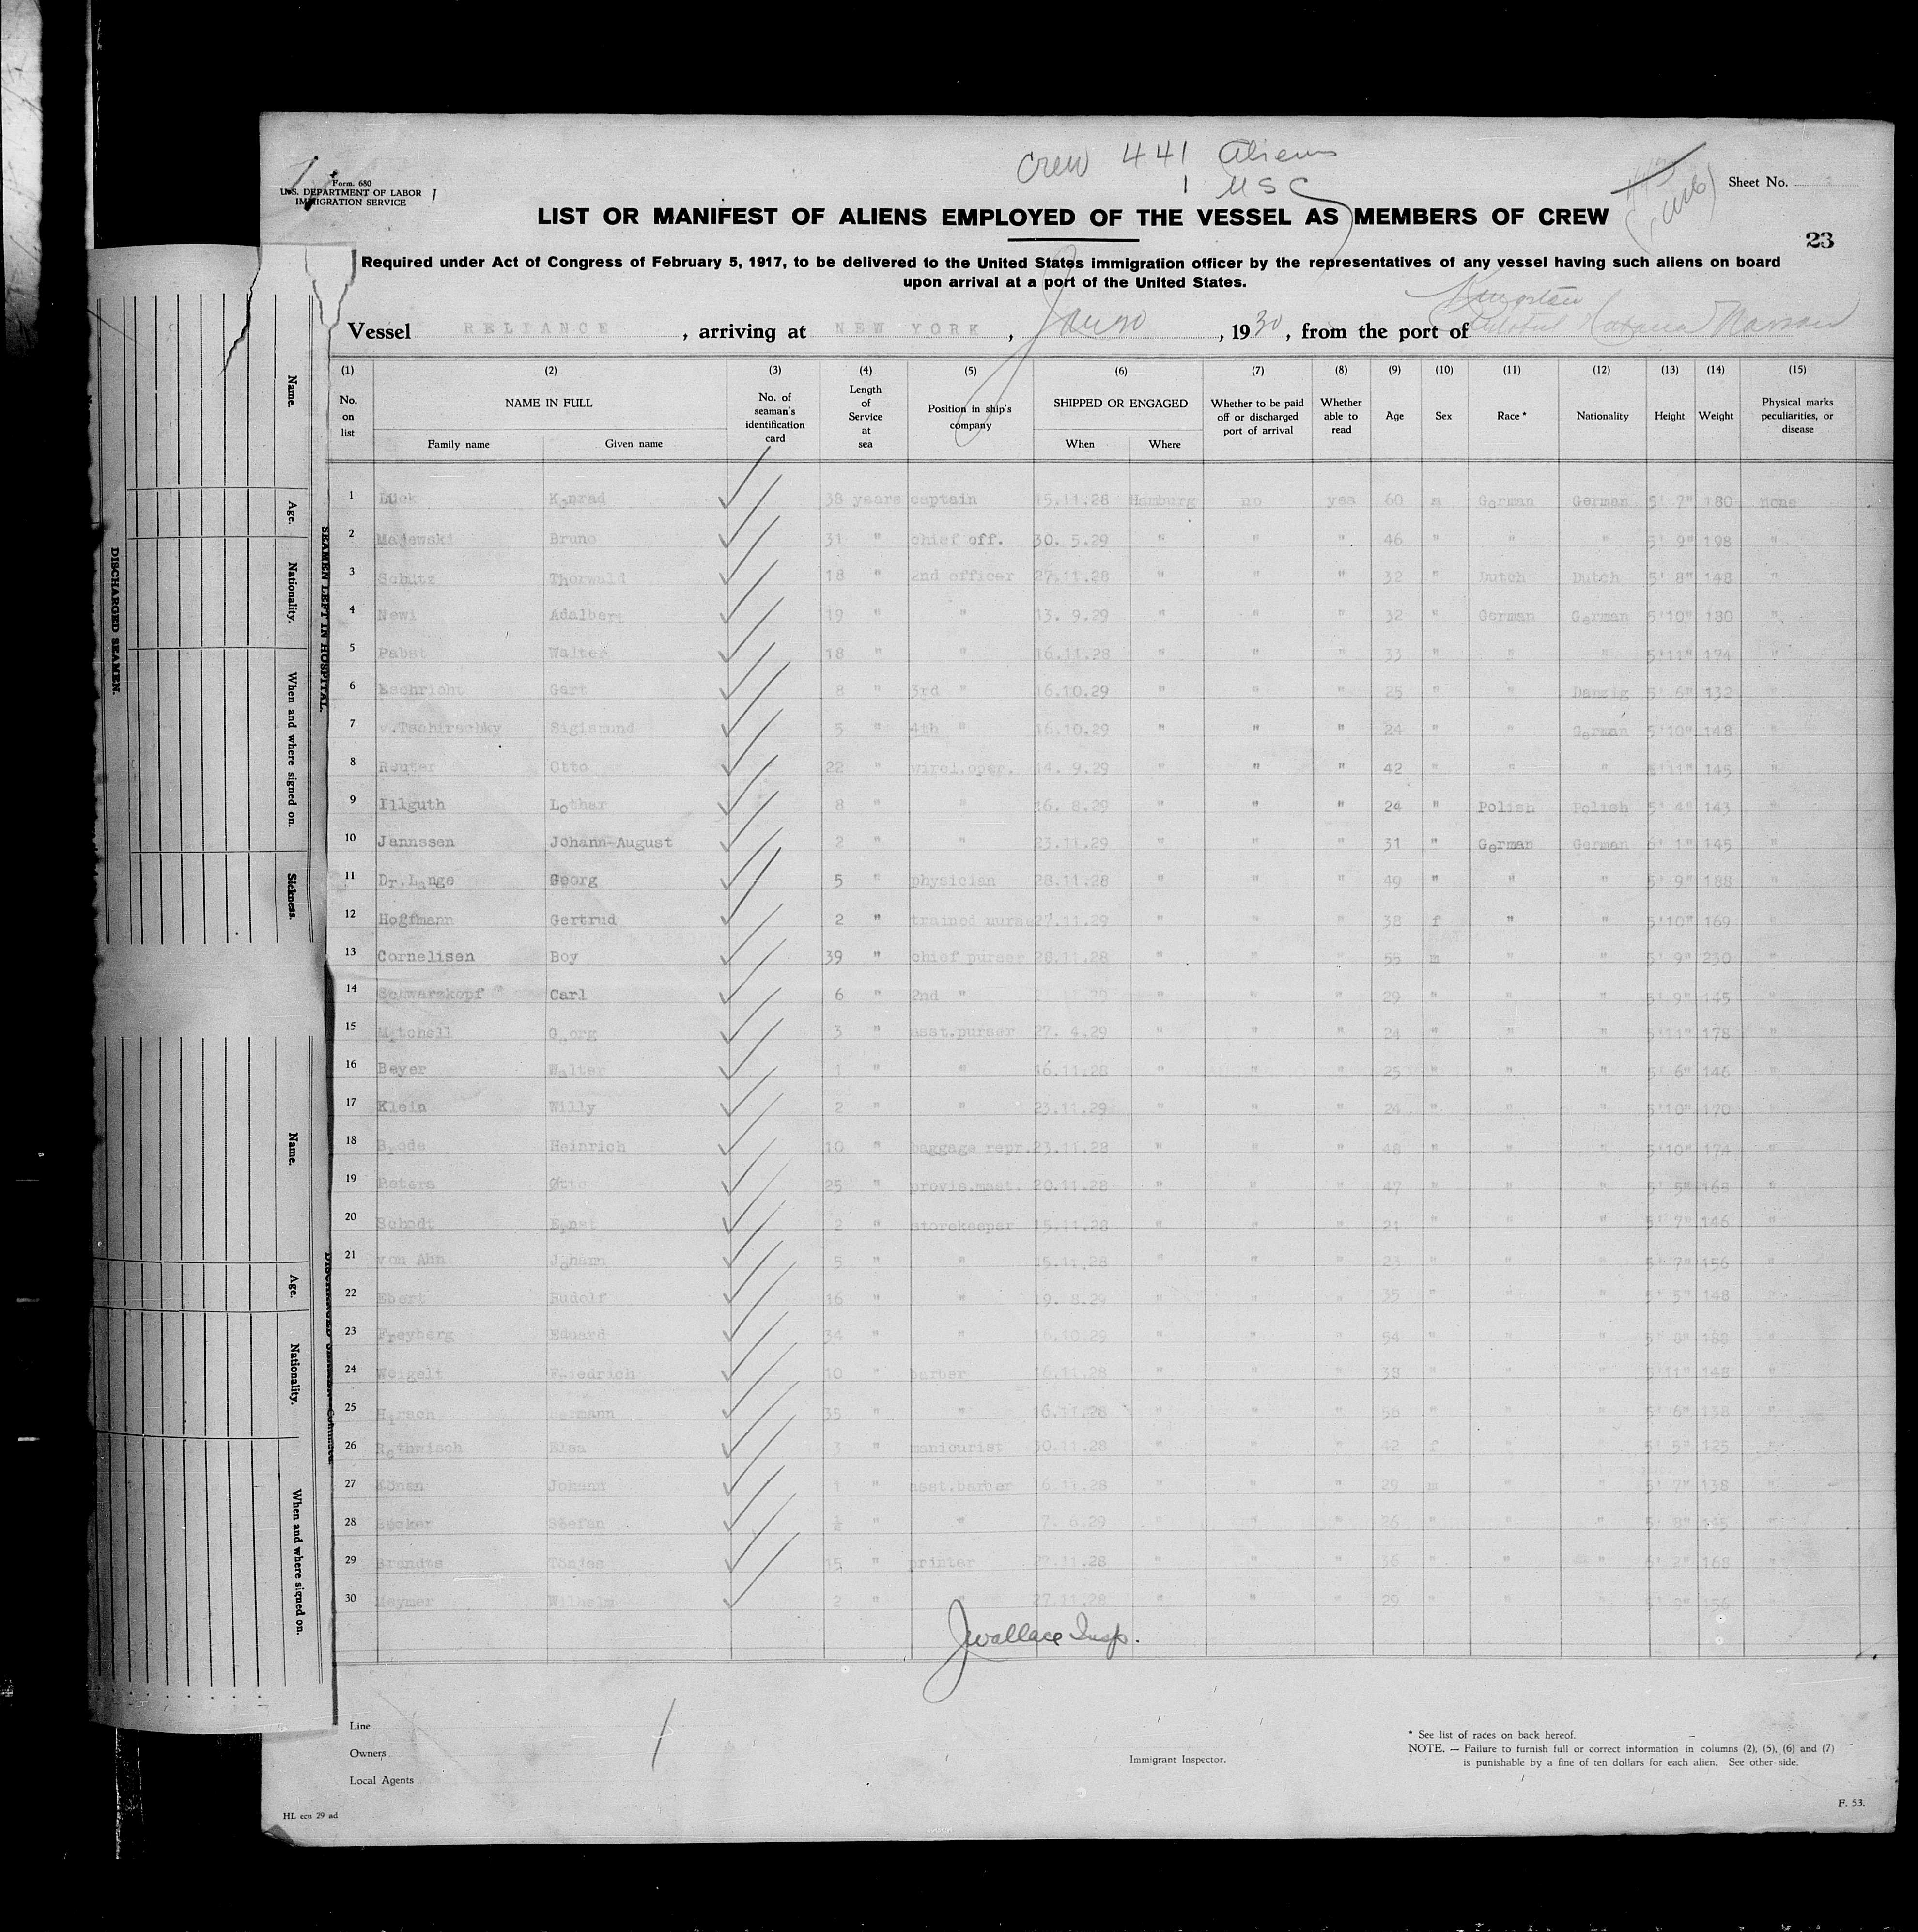 Crew 441 Aliens
1 USC
Form. 680
U.S. DEPARTMENT OF LABOR
IMMIGRATION SERVICE
Sheet No.
LIST OR MANIFEST OF ALIENS EMPLOYED OF THE VESSEL AS MEMBERS OF CREW
23
Required under Act of Congress of February 5, 1917, to be delivered to the United States immigration officer by the representatives of any vessel having such aliens on board
upon arrival at a port of the United States.
Kingston
Vessel RELIANCE, arriving at NEW YORK, Jan 20, 1930, from the port of Habana Nassau
(1) (2) (3) (4) (5) (6) (7) (8) (9) (10) (11) (12) (13) (14) (15)
No. on list NAME IN FULL Family name Given name No. of seaman's identification card Length of Service at sea Position in ship's company SHIPPED OR ENGAGED When Where Whether to be paid off or discharged port of arrival Whether able to read Age Sex Race * Nationality Height Weight Physical marks peculiarities, or disease
1 Lück Konrad 38 years captain 15.11.28 Hamburg no yes 60 m German German 5' 7" 180 none
2 Majewski Bruno 31 " chief off. 30. 5.29 " " " 46 " " " 5' 9" 198 "
3 Schütz Thorwald 18 " 2nd officer 27.11.28 " " " 32 " Dutch Dutch 5' 8" 148 "
4 Newi Adalbert 19 " " 13. 9.29 " " " 32 " German German 5'10" 180 "
5 Pabst Walter 18 " " 16.11.28 " " " 33 " " " 5'11" 174 "
6 Eschricht Gert 8 " 3rd " 16.10.29 " " " 25 " " Danzig 5' 6" 132 "
7 v.Tschirschky Sigismund 5 " 4th " 16.10.29 " " " 24 " " German 5'10" 148 "
8 Reuter Otto 22 " wirel.oper. 14. 9.29 " " " 42 " " " 5'11" 145 "
9 Illguth Lothar 8 " " 16. 8.29 " " " 24 " Polish Polish 5' 4" 143 "
10 Jannssen Johann-August 2 " " 23.11.29 " " " 31 " German German 6' 1" 145 "
11 Dr.Lange Georg 5 " physician 28.11.28 " " " 49 " " " 5' 9" 188 "
12 Hoffmann Gertrud 2 " trained nurse 27.11.29 " " " 38 f " " 5'10" 169 "
13 Cornelisen Boy 39 " chief purser 28.11.28 " " " 55 m " " 5' 9" 230 "
14 Schwarzkopf Carl 6 " 2nd " " " " 29 " " " 5' 9" 145 "
15 Mitchell Georg 3 " asst.purser 27. 4.29 " " " 24 " " " 5'11" 178 "
16 Beyer Walter 1 " " 16.11.28 " " " 25 " " " 5' 6" 146 "
17 Klein Willy 2 " " 23.11.29 " " " 24 " " " 5'10" 170 "
18 Brode Heinrich 10 " baggage repr. 23.11.28 " " " 48 " " " 5'10" 174 "
19 Peters Otto 25 " provis.mast. 20.11.28 " " " 47 " " " 5' 5" 168 "
20 Schodt Ernst 2 " storekeeper 15.11.28 " " " 21 " " " 5' 7" 146 "
21 von Ahn Johann 5 " " 15.11.28 " " " 23 " " " 5' 7" 156 "
22 Ebert Rudolf 16 " " 19. 8.29 " " " 35 " " " 5' 5" 148 "
23 Freyberg Eduard 34 " " 16.10.29 " " " 54 " " " 5' 8" 188 "
24 Weigelt Friedrich 10 " barber 16.11.28 " " " 38 " " " 5'11" 148 "
25 Hirsch Hermann 35 " " 16.11.28 " " " 56 " " " 5' 6" 138 "
26 Rothwisch Elsa 3 " manicurist 30.11.28 " " " 42 f " " 5' 5" 125 "
27 Könen Johann 1 " asst.barber 16.11.28 " " " 29 m " " 5' 7" 138 "
28 Becker Stefan ½ " " 7. 6.29 " " " 26 " " " 5' 8" "
29 Brandes Tönjes 15 " printer 27.11.28 " " " 36 " " " 6' 2" 168 "
30 Meymer Wilhelm 2 " " 27.11.28 " " " 29 " " " 156 "
J Wallace Insp.
Line
Owners
Local Agents
Immigrant Inspector.
* See list of races on back hereof.
NOTE. — Failure to furnish full or correct information in columns (2), (5), (6) and (7)
is punishable by a fine of ten dollars for each alien. See other side.
HL ecu 29 ad
F. 53.
DISCHARGED SEAMEN.
SEAMEN LEFT IN HOSPITAL.
Name.
Age.
Nationality.
When and where signed on.
Sickness.
Name.
Age.
Nationality.
When and where signed on.